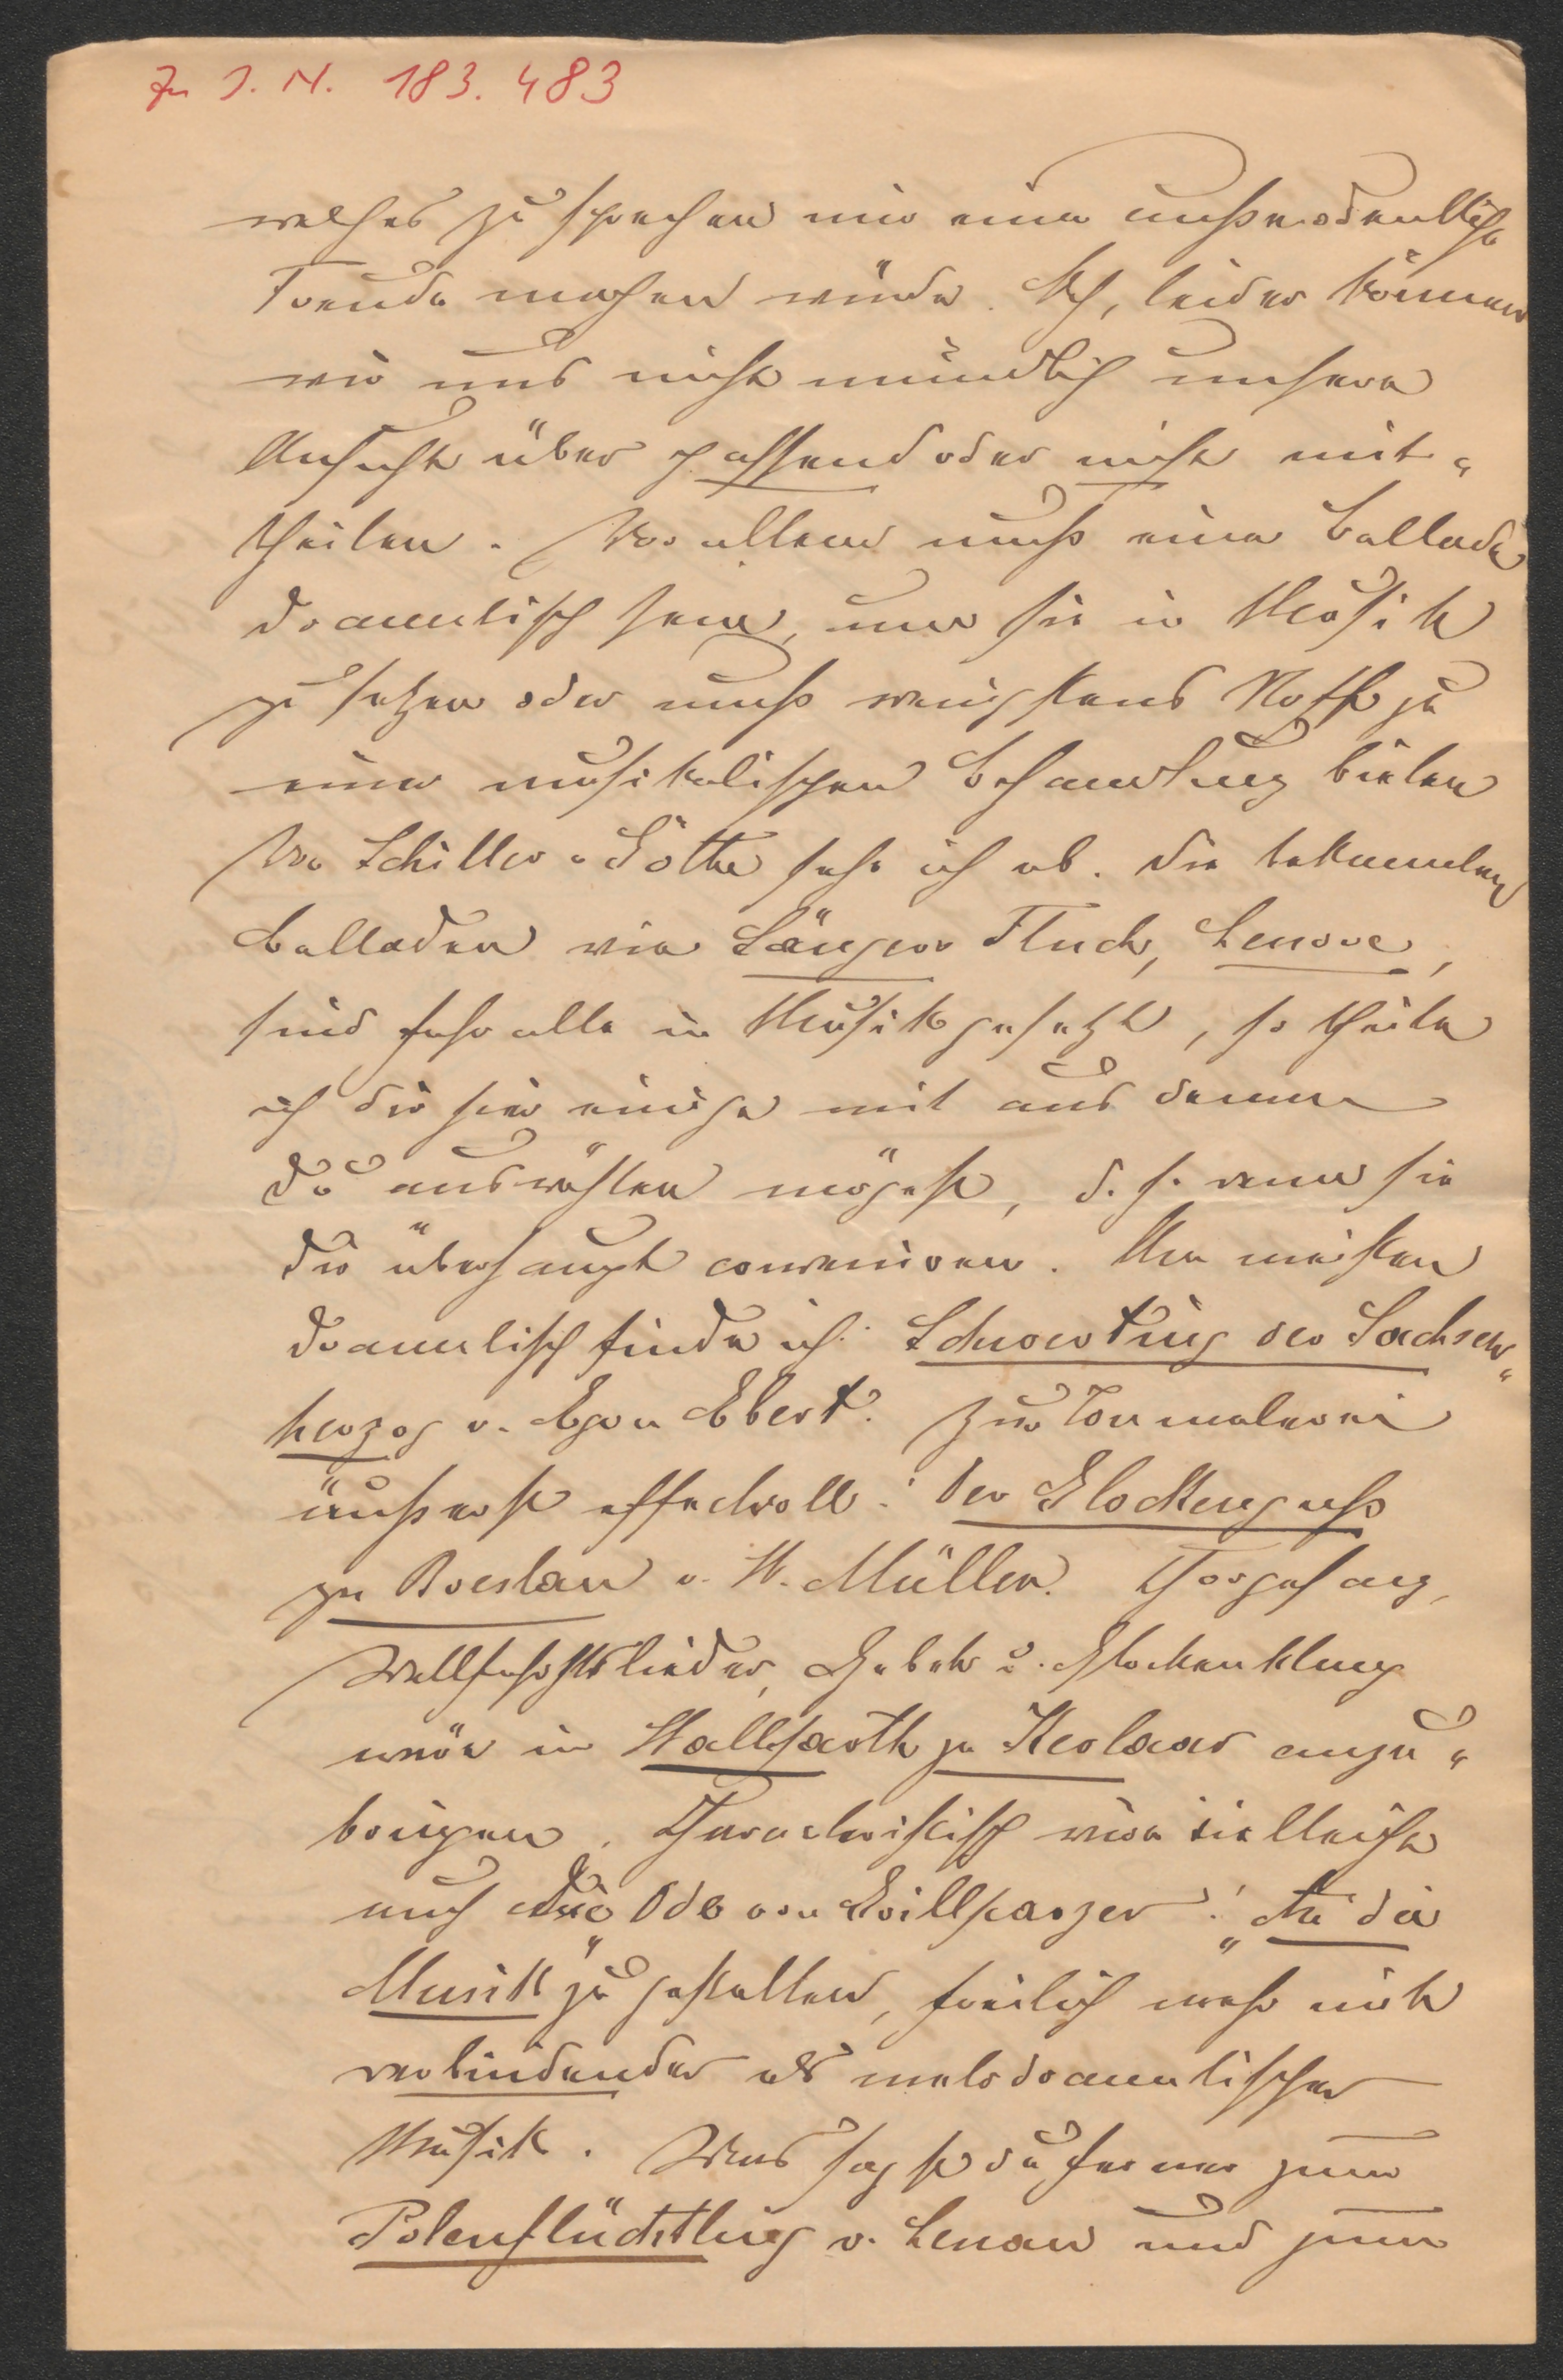 Zu I. N. 183.483
welches zu sprechen mir eine außerordentliche
Freude machen würde. Ach, leider können
wir uns nicht mündlich unsere
Ansicht über passend oder nicht mit-
theilen. Vor allem muß eine Ballade
dramatisch sein, um sie in Musik
zu setzen oder muß wenigstens Stoff zu
einer musikalischen Behandlung bieten
Von Schiller u Göthe sehe ich ab. Die bekannten
Balladen wie Sängers Fluch, Lenore,
sind fast alle in Musik gesetzt, so theile
ich dir hier einige mit aus denen
Du auswählen mögest, d. h. wenn sie
dir überhaupt conveniren. Am meisten
dramatisch finde ich: Schwerting der Sachsen-
herzog v. Egon Ebert. Zur Tonmalerei
äußerst effectvoll: Der Glockenguß
zu Breslau v. W. Müller. Chorgesang,
Wallfahrtslieder, Gebete u. Glockenklang
wäre in Wallfarth zu Kevlaar anzu-
bringen. Characteristisch wäre vielleicht
auch die Ode von Grillparzer: „An die
Musik" zu gestalten, freilich mehr mit
verbindender als melodramatischer
Musik. Was sagst du ferner zum
Polenflüchtling v. Lenau und zum